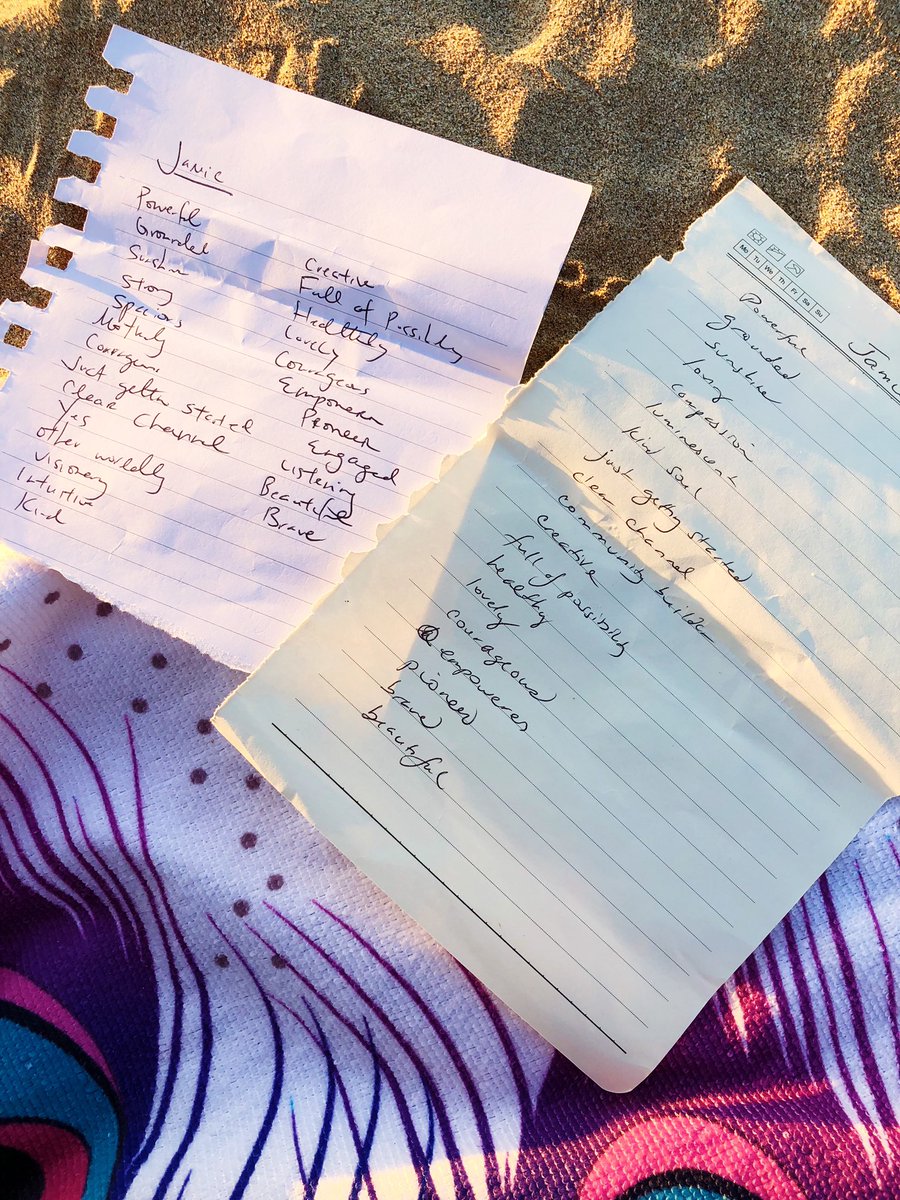 Jamie
Powerful
Grounded
Sunshin
Strong
Spacious
Motherly
Courageous
Just getting started
Clear Channel
Yes
other worldly
Visionary
Intuitive
Kind
Creative
Full of Possiblity
Healthly
Lovely
Courageous
Empowerer
Pioneer
Engaged
Listening
Beautiful
Brave
Mo Tu We Th Fr Sa Su
Jami
Powerful
grounded
sunshine
long
compassion
luminescent
kind soul
just getting started
clear channel
community builder
creative
full of possibility
healthy
lovely
courageous
empowerer
pioneer
brave
beautiful